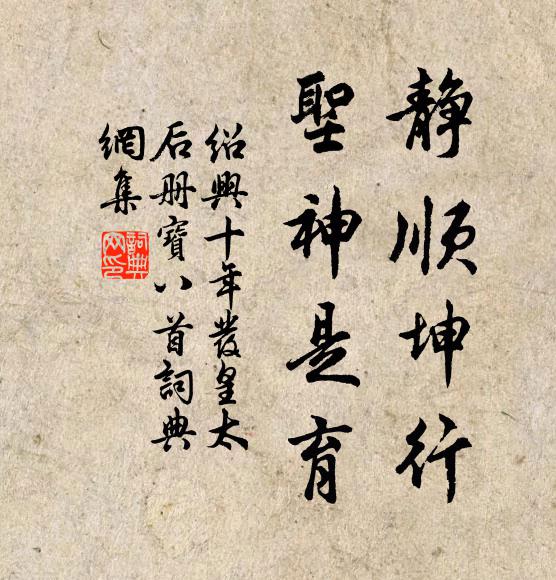 静順坤行
聖神是育
紹興十年發皇太
后册寶八首詞典
網集
詞典
网印